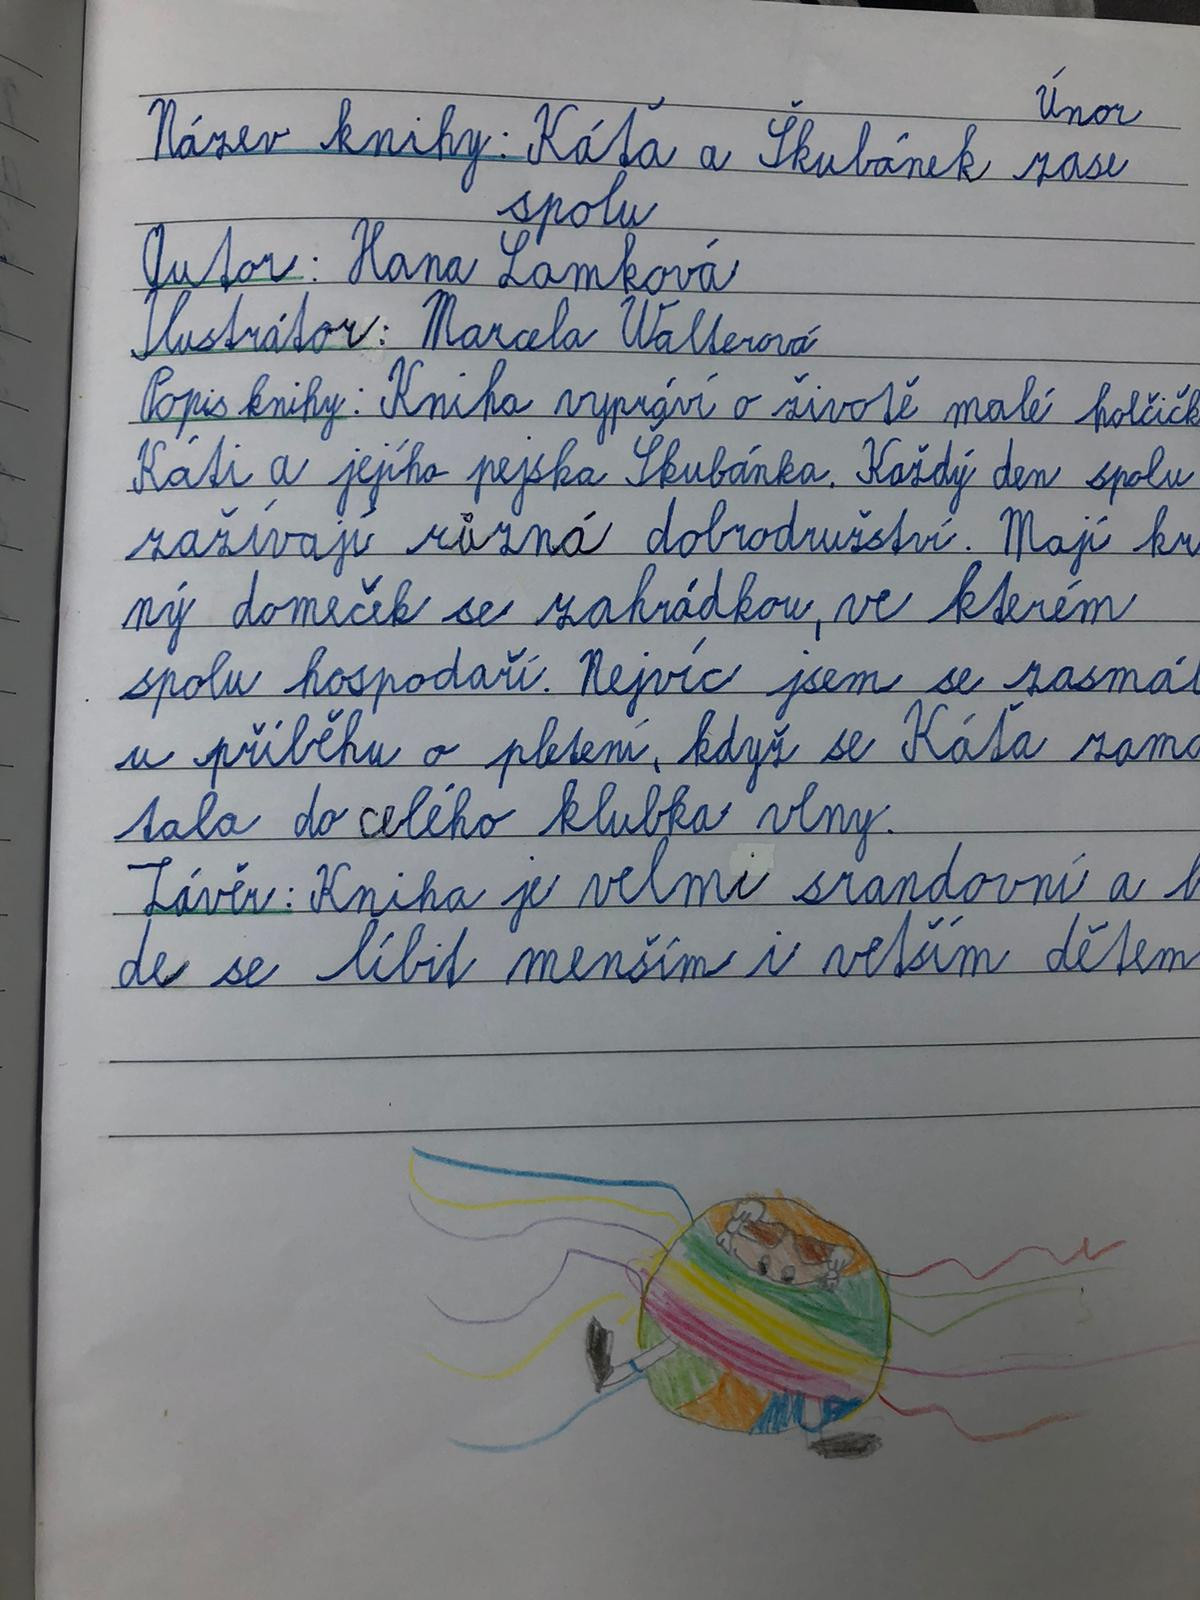 Únor
Název knihy: Káťa a Škubánek zase
spolu
Autor: Hana Lamková
Ilustrátor: Marcela Walterová
Popis knihy: Kniha vypráví o životě malé holčičk
Káti a jejího pejska Škubánka. Každý den spolu
zažívají různá dobrodružství. Mají kr
ný domeček se zahrádkou, ve kterém
spolu hospodaří. Nejvíc jsem se zasmál
u příběhu o pletení, když se Káťa zamo
tala do celého klubka vlny.
Závěr: Kniha je velmi srandovní a b
de se líbit menším i vetším dětem